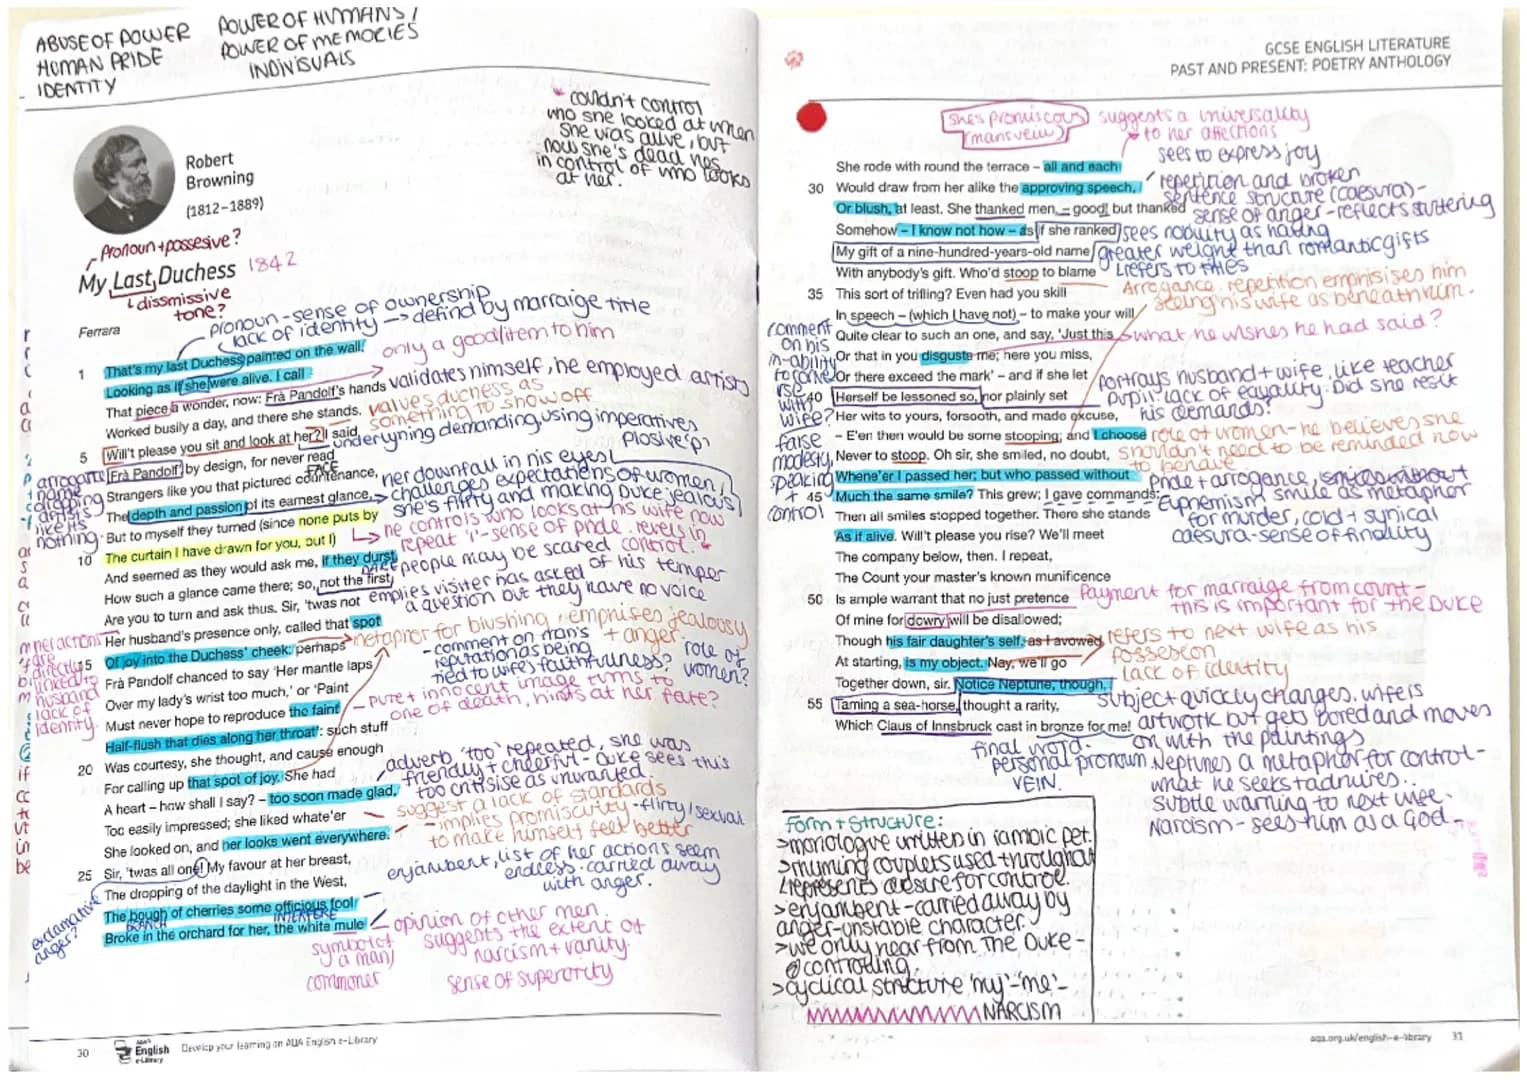 ABUSE OF POWER
HUMAN PRIDE
IDENTITY
POWER OF HUMANS /
POWER OF MEMORIES
INDIVISUALS
Robert
Browning
(1812–1889)
couldn't control
who she looked at when
she was alive, but
now she's dead hes
in control of who looks
at her.
Pronoun + possesive?
My Last Duchess 1842
dissmissive
tone?
Ferrara
pronoun - sense of ownership
lack of identity → defind by marraige title
only a good/item to him
1 That's my last Duchess painted on the wall,
Looking as if she were alive. I call
That piece a wonder, now: Frà Pandolf's hands
validates himself, he employed artists
Worked busily a day, and there she stands.
values duchess as
something to show off
5 Will't please you sit and look at her? I said
underlyning demanding, using imperatives
plosive 'p'
'Frà Pandolf' by design, for never read
FACE
Strangers like you that pictured countenance,
The depth and passion of its earnest glance,
her downfall in his eyes!
challenges expectations of women,
she's flirty and making Duke jealous
But to myself they turned (since none puts by
10 The curtain I have drawn for you, but I)
he controls who looks at his wife now
repeat 'I' - sense of pride. revels in
control.
And seemed as they would ask me, if they durst,
DARE
people may be scared of his temper
How such a glance came there; so, not the first
Are you to turn and ask thus. Sir, 'twas not
emplies visiter has asked
a question but they have no voice
Her husband's presence only, called that spot
15 Of joy into the Duchess' cheek: perhaps
metaphor for blushing, emphises jealousy
+ anger.
- comment on man's
reputation as being
tied to wife's faithfulness?
role of
women?
Frà Pandolf chanced to say 'Her mantle laps
Over my lady's wrist too much,' or 'Paint
Must never hope to reproduce the faint
Half-flush that dies along her throat': such stuff
- pure + innocent image turns to
one of death, hints at her fate?
20 Was courtesy, she thought, and cause enough
For calling up that spot of joy. She had
A heart – how shall I say? – too soon made glad,
adverb 'too' repeated, she was
friendly + cheerful - Duke sees this
too critisise as unwanted.
Too easily impressed; she liked whate'er
She looked on, and her looks went everywhere.
suggest a lack of standards
- implies promiscuity - flirty/sexual
to make himself feel better
25 Sir, 'twas all one! My favour at her breast,
The dropping of the daylight in the West,
enjambent, list of her actions seem
endless - carried away
with anger.
The bough of cherries some officious fool
BRANCH
INTERFERE
Broke in the orchard for her, the white mule
exclamative
anger?
symbol of
a man/
commoner
opinion of other men.
suggests the extent of
narcism + vanity.
sense of superority
arrogant
name
dropping
artists
like its
nothing.
husband
lack of
identity.
30
AQA's
English
e-Library
Develop your learning on AQA English e-Library
GCSE ENGLISH LITERATURE
PAST AND PRESENT: POETRY ANTHOLOGY
She's promiscous
(mans veiw)
suggests a universality
to her affections
sees to express joy
She rode with round the terrace – all and each
30 Would draw from her alike the approving speech,
Or blush, at least. She thanked men, – good! but thanked
repetition and broken
sentence structure (caesura) -
sense of anger - reflects stuttering
Somehow – I know not how – as if she ranked
My gift of a nine-hundred-years-old name
sees nobility as having
greater weight than romantic gifts
refers to titles
With anybody's gift. Who'd stoop to blame
35 This sort of trifling? Even had you skill
Arrogance. repetition emphisises him
seeing his wife as beneath him.
In speech – (which I have not) – to make your will
Quite clear to such an one, and say, 'Just this
what he wishes he had said?
Or that in you disgusts me; here you miss,
Or there exceed the mark' – and if she let
40 Herself be lessoned so, nor plainly set
portrays husband + wife, like teacher
pupil lack of equality. Did she resist
his demands?
Her wits to yours, forsooth, and made excuse,
– E'en then would be some stooping; and I choose
Never to stoop. Oh sir, she smiled, no doubt,
role of women - he believes she
shouldn't need to be reminded how
to behave
Whene'er I passed her; but who passed without
45 Much the same smile? This grew; I gave commands;
Pride + arrogance,
Then all smiles stopped together. There she stands
As if alive. Will't please you rise? We'll meet
Euphemism, smile as metaphor
for murder, cold + synical
caesura - sense of finality
The company below, then. I repeat,
The Count your master's known munificence
50 Is ample warrant that no just pretence
Of mine for dowry will be disallowed;
Payment for marraige from count -
this is important for the DUKE
Though his fair daughter's self, as I avowed
At starting, is my object. Nay, we'll go
refers to next wife as his
possession
lack of identity
Together down, sir. Notice Neptune, though,
55 Taming a sea-horse, thought a rarity,
Which Claus of Innsbruck cast in bronze for me!
subject quickly changes. wife is
artwork but gets bored and moves
on with the paintings
Neptunes a metaphor for control -
what he seeks + admires..
subtle warning to next wife.
Narcism - sees him as a God -
final word.
personal pronoun
VEIN.
comment
on his
in-ability
with
wife?
false
modesty,
speaking
+
control
Form + Structure:
>monologue written in iambic pet.
>rhyming couplets used throughout
represents desire for control.
>enjambent - carried away by
anger - unstable character.
>we only hear from The Duke -
controlling
>cyclical structure 'my' - 'me' -
NARCISM
aqa.org.uk/english-e-library 31